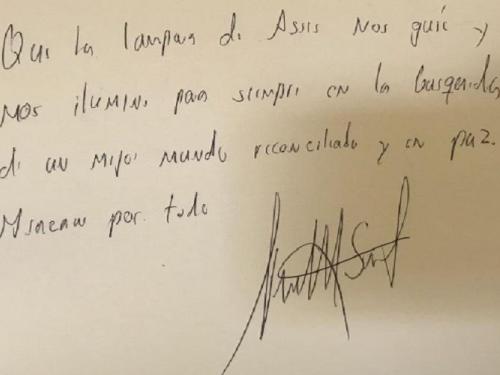 Que la lampara de Assis nos guie y
nos ilumine para siempre en la busqueda
de un mejor mundo reconciliado y en paz.
por todo